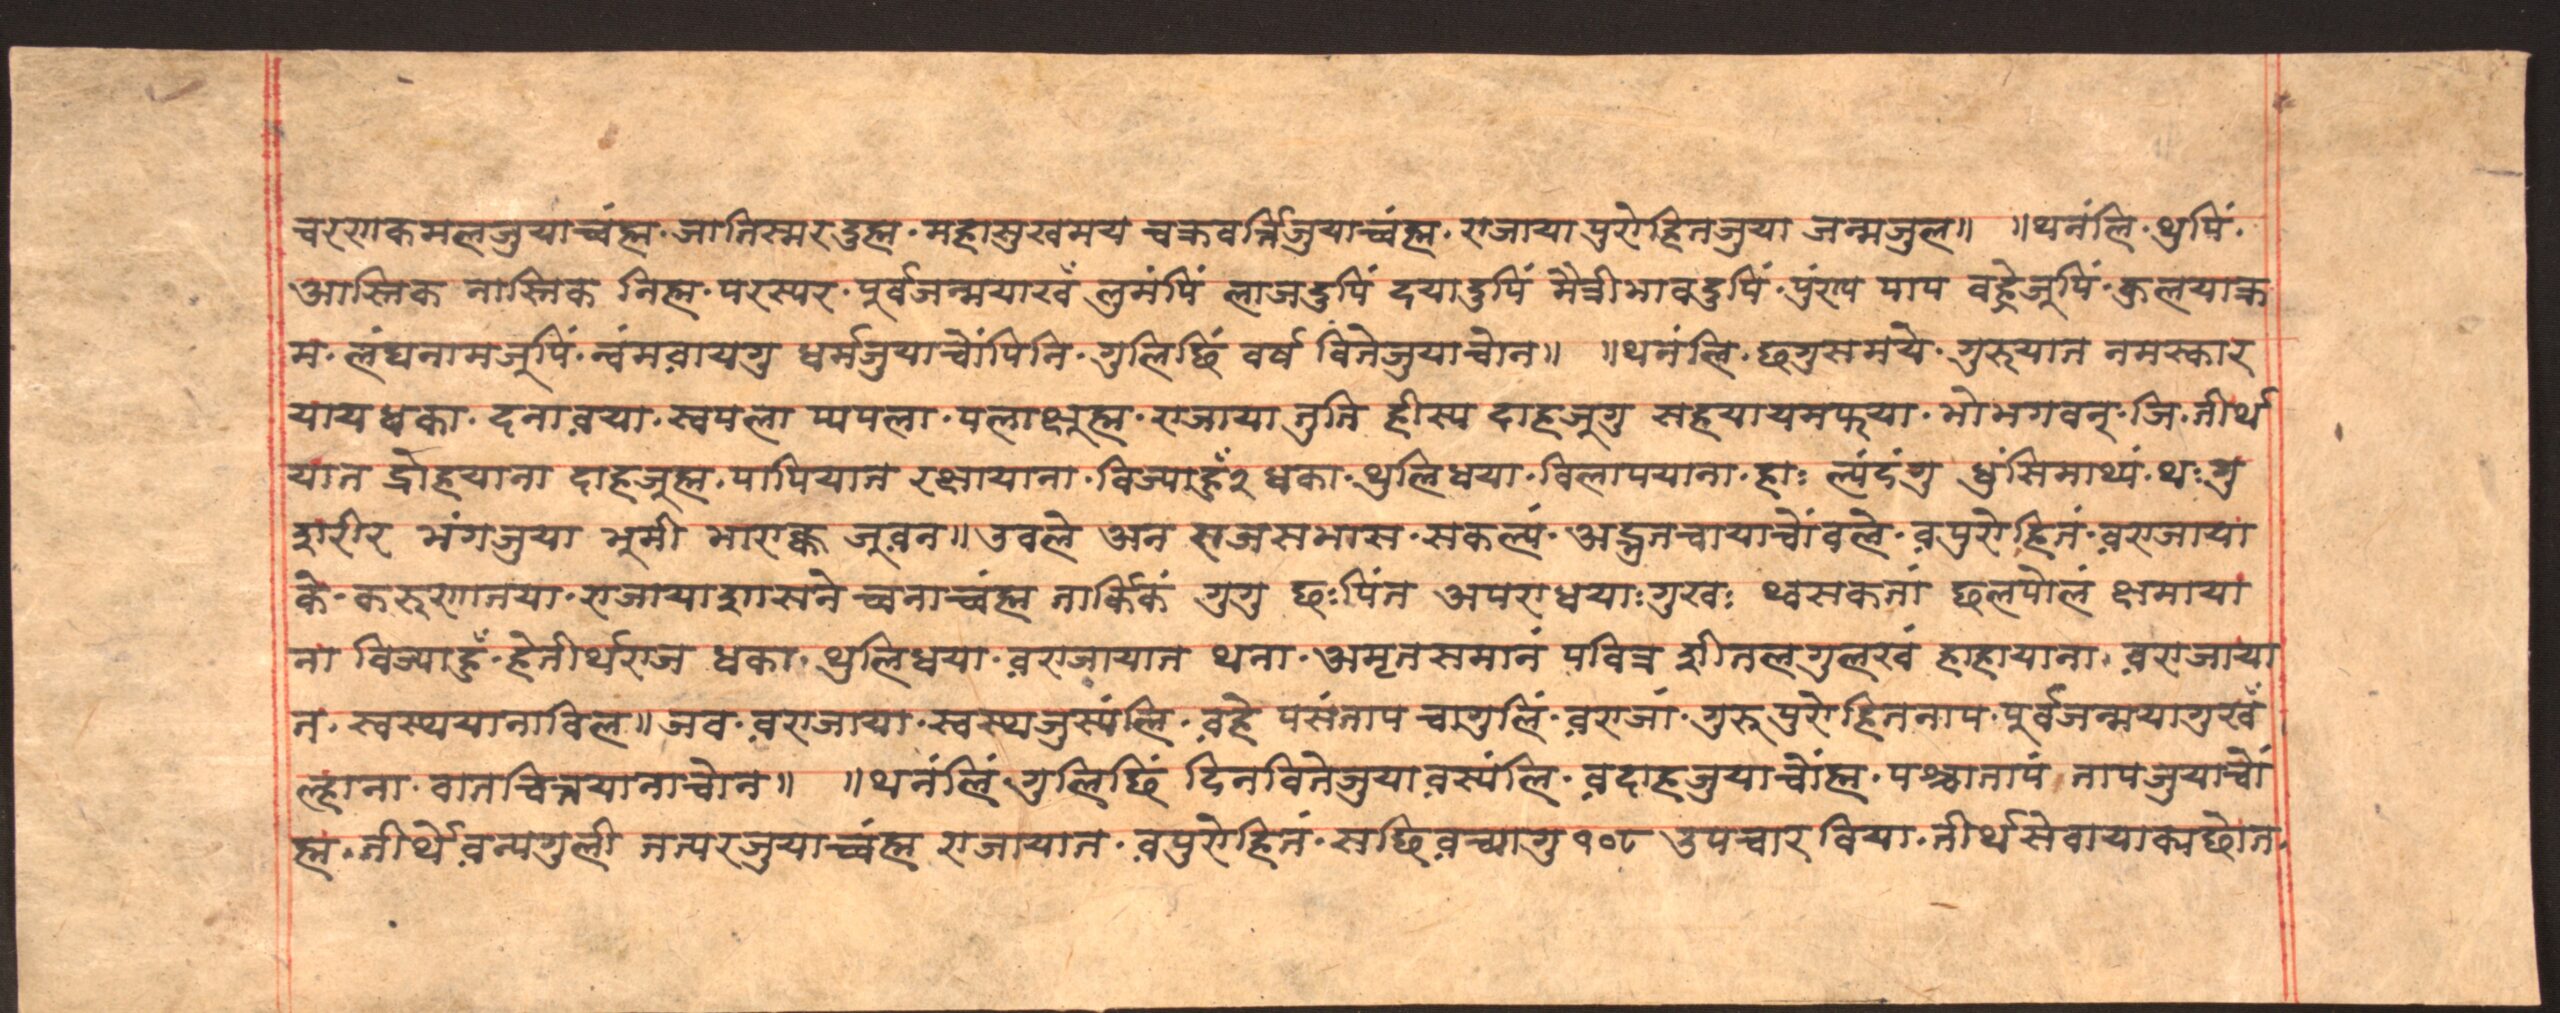 चरणकमलजुयाच्वंह्म. जातिस्मरदुह्म. महासुखमय चक्रवर्त्तिजुयाच्वंह्म. राजाया पुरोहितजुया जन्मजुल॥ ॥थनंलि. थुपिं.
आस्तिक नास्तिक निह्म. परस्पर. पूर्वजन्मयाखँ लुमंपिं लाजदुपिं दयादुपिं मैत्रीभावदुपिं. पुंण्य पाप वहेजूपिं. कुलयाक्र
म. लंघनामजूपिं. त्वंमव़ायगु धर्मजुयाचोंपिनि. गुलिछिं वर्ष वितेजुयाचोन॥ ॥थनंलि. छगुसमये. गुरूयात नमस्कार
यायधका. दनाव़या. स्वपला प्यपला. पलाछ्नूह्म. राजाया तुति हीस्य दाहजूगु सहयायमफया. भोभगवन्. जि. तीर्थ
यात द्रोहयाना दाहजूह्म. पापियात रक्षायाना. विज्याहुँ२ धका. थुलिधया. विलापयाना. हाः ल्यंदंगु ध्रुंसिमाथ्यं. थःगु
शरीर भंगजुया भूमी भाराक्क जूव़न॥ उवले अन राजसभास. सकल्यं. अद्भुतचायाचोंवले. व़पुरोहितं. व़राजाया
के. करूणातया. राजायाशासने च्वनाच्वंह्म तार्किकं गुगु छःपिंत अपराधयाःगुखः थ्वसकतां छलपोलं क्षमाया
ना विज्याहुँ. हेतीर्थराज धका. थुलिधया. व़राजायात थना. अमृतसमानं पवित्र शीतलगुलखं हाहायाना. व़राजाया
त. स्वस्थयानाविल॥ अव. व़राजाया. स्वस्थजुस्यंलि. व़हे पसंताप चागुलिं. व़राजां. गुरुपुरोहितनाप. पूर्वजन्मयागुखँ
ल्हाना. वातचित्नयानाचोन॥ ॥थनंलिं गुलिछिं दिनवितेजुयाव़स्यंलि. व़दाहजुयाचोंह्म. पश्चातापं तापजुयाचों
ह्म. तीर्थेव़न्यगुली तत्परजुयाच्वंह्म राजायात. व़पुरोहितं. सछिव़च्यागु १०८ उपचार विया. तीर्थसेवायाक्यछोत.